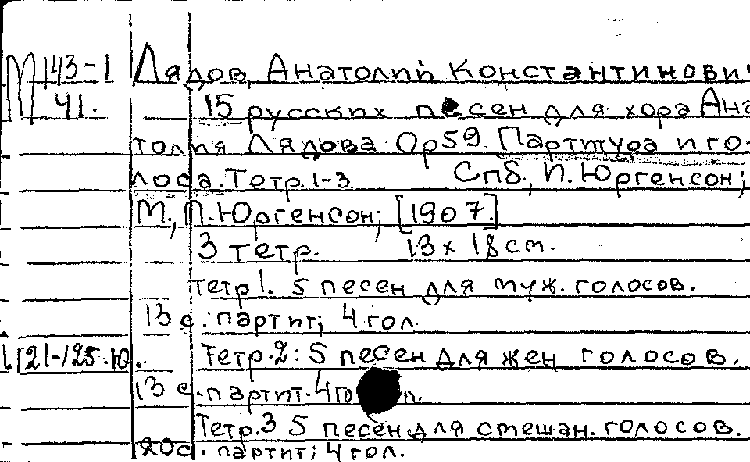 М 143-1 Лядов, Анатолий Константинович
41. 15 русских песен для хора Ана-
толия Лядова. Ор 59. Партитура и го-
лоса. Тетр. 1-3 Спб, П. Юргенсон;
М., П. Юргенсон; [1907]
3 тетр. 13 x 18 см.
Тетр 1. 5 песен для муж. голосов.
13 с. партит; 4 гол.
121-125.Ю. Тетр. 2: 5 песен для жен голосов.
13 с. партит. 4
Тетр. 3 5 песен для смешан. голосов.
20 с. партит; 4 гол.